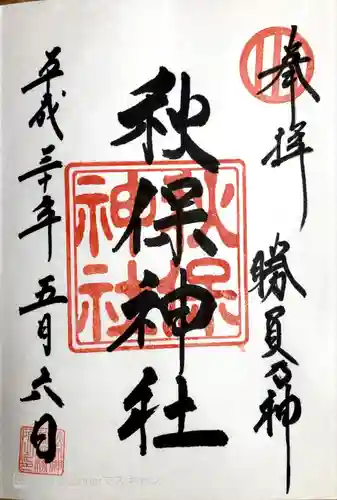 奉拝 勝負の神
秋保神社
平成三十年 五月六日
秋保
神社